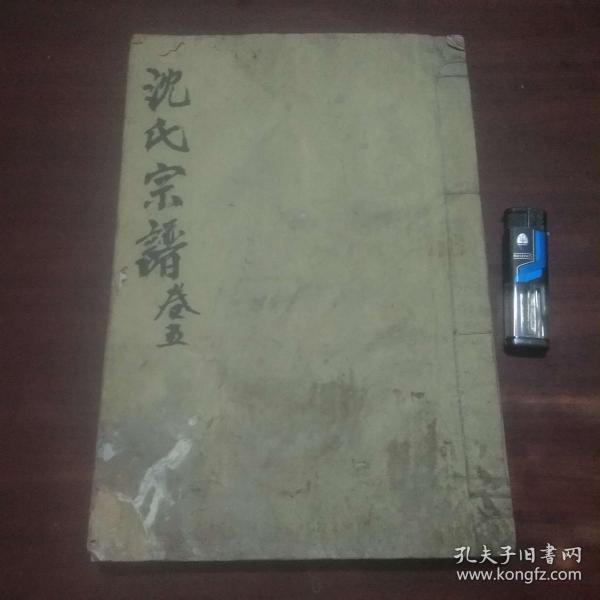 沈氏宗譜
卷五
孔夫子旧書网
www.kongfz.com